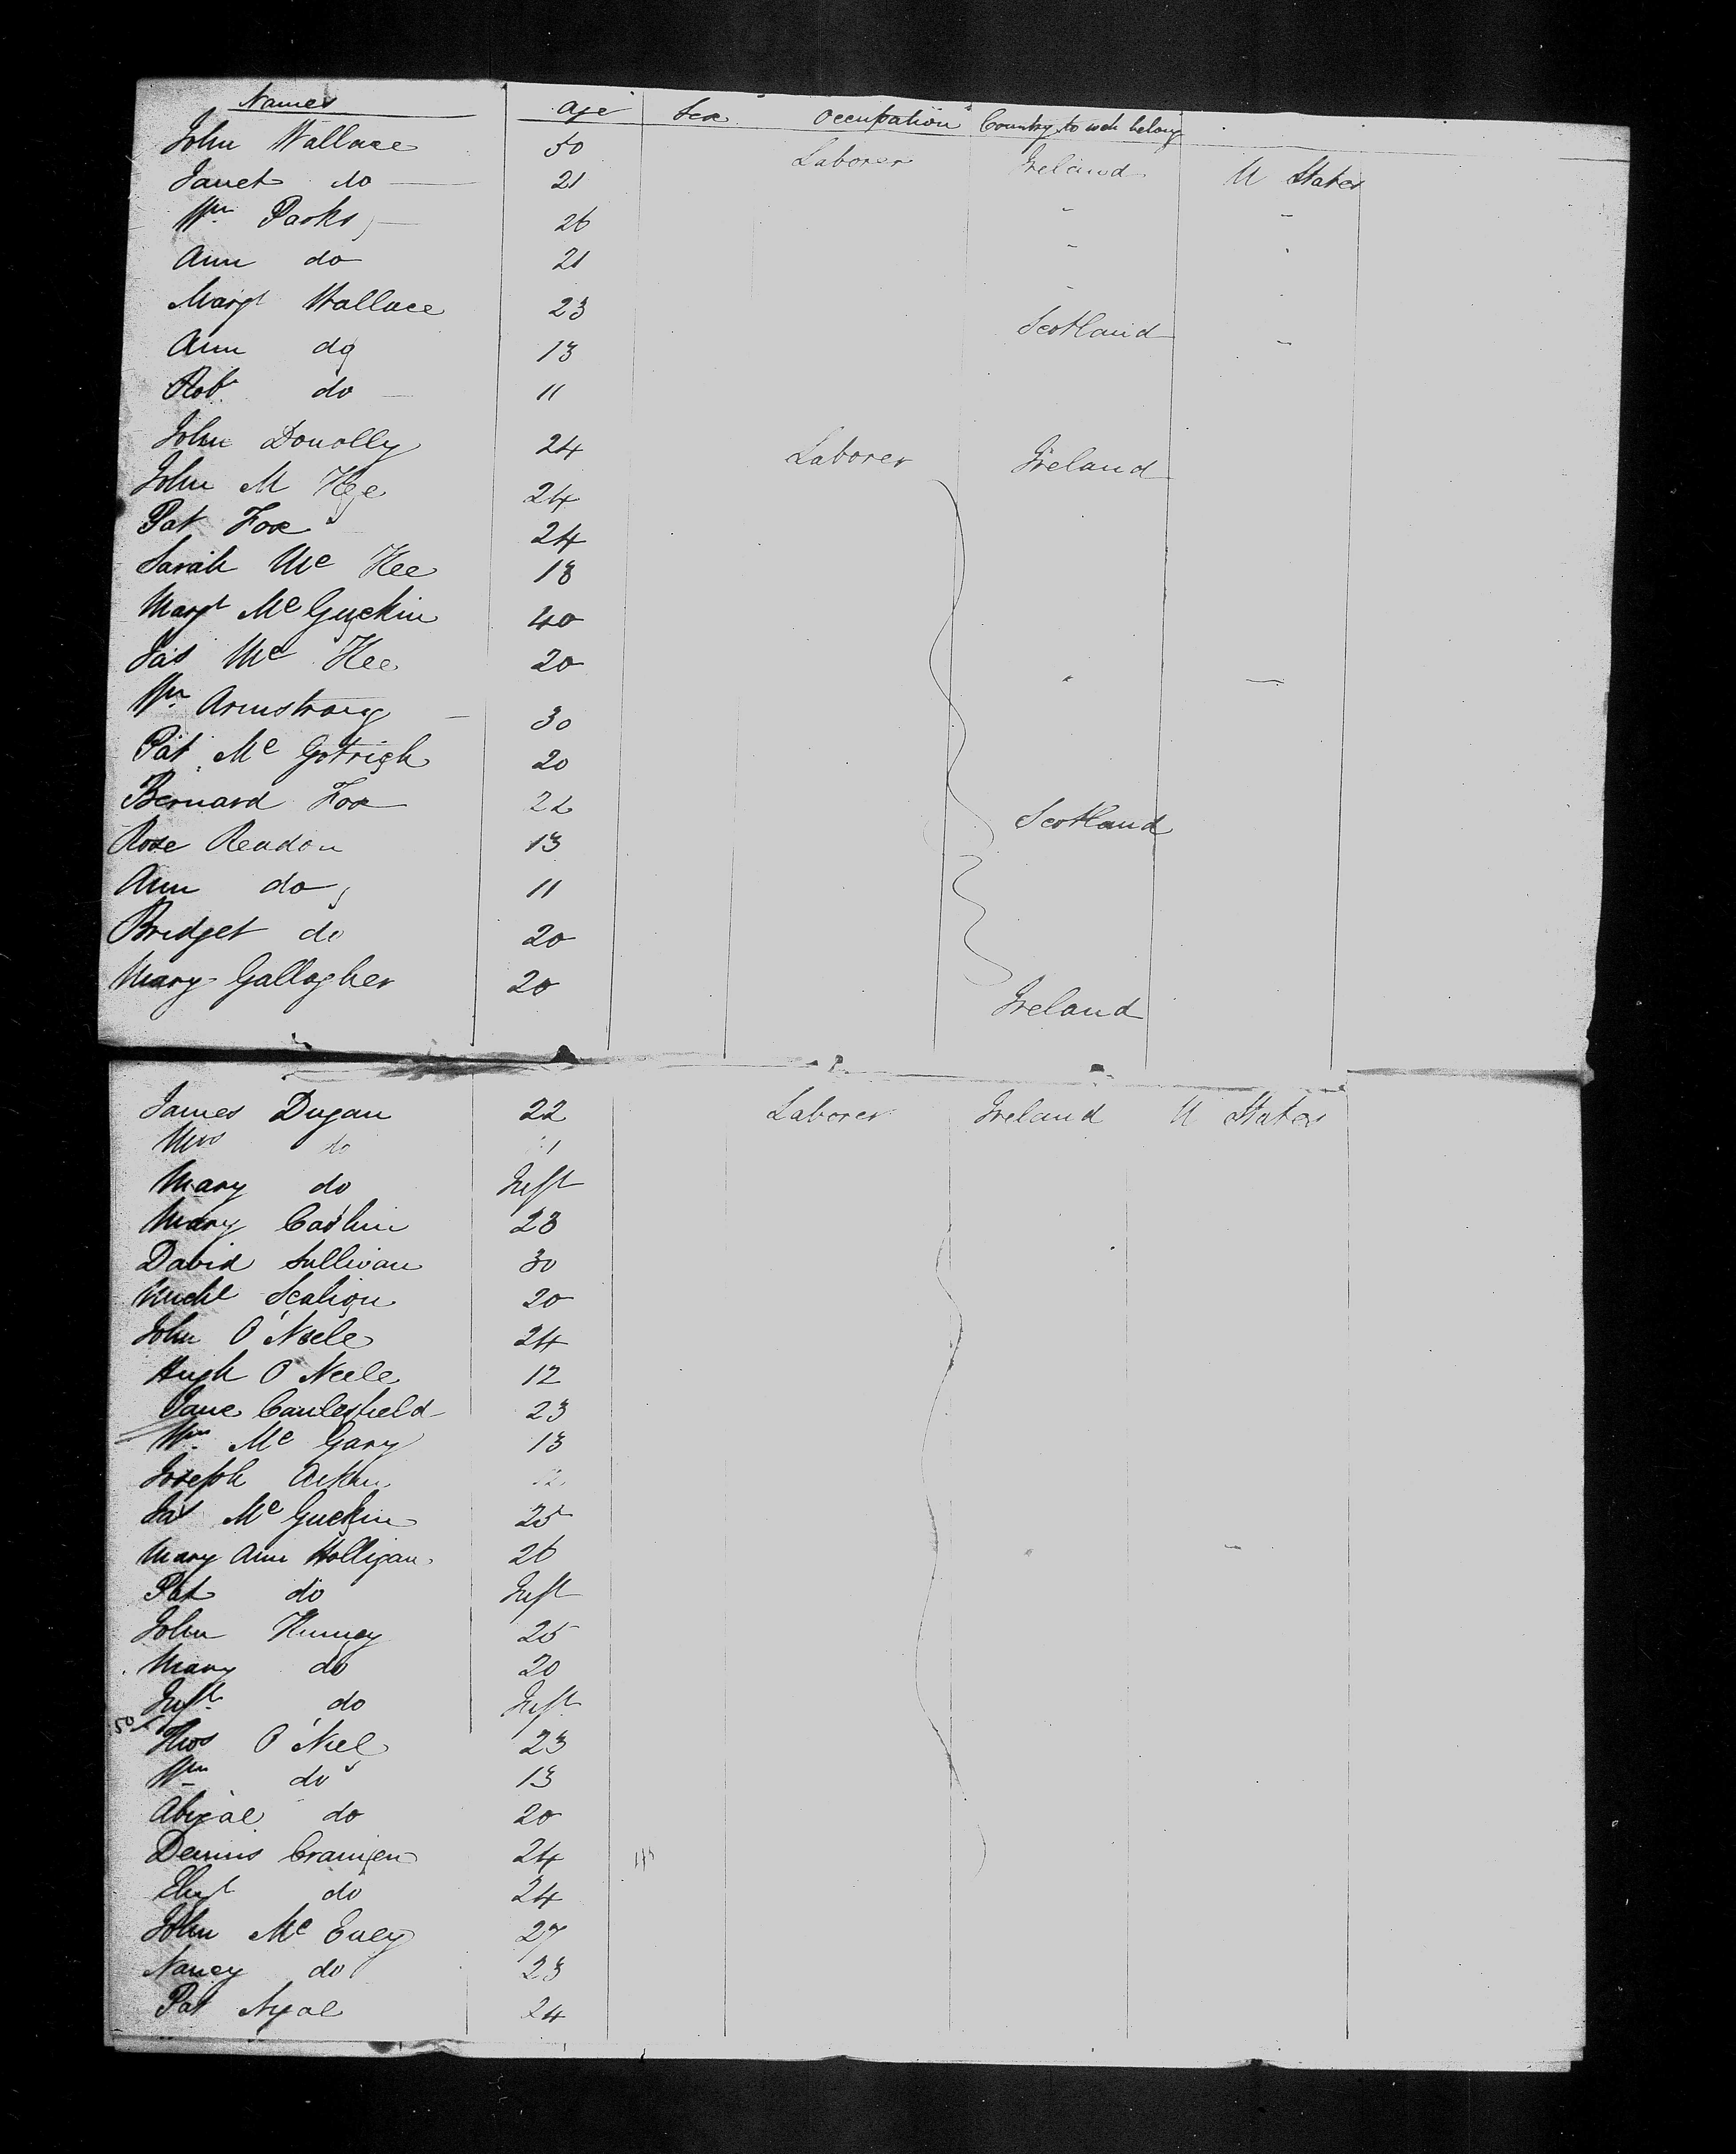 Names Age Sex Occupation Country to wch belong
John Wallace 50 Laborer Ireland U States
Janet do 21
Wm Parks 26 " "
Ann do 21 " "
Margt Wallace 23 " "
Ann do 13 Scotland "
Robt do 11
John Donolly 24 Laborer Ireland
John M Kee 24
Pat Fox 24
Sarah Mc Kee 18
Margt Mc Guckin 40
Jas Mc Kee 20 " "
Wm Armstrong 30
Pat Mc Gotrigh 20
Bernard Fox 22 Scotland
Rose Readon 13
Ann do 11
Bridget do 20
Mary Gallagher 20 Ireland
James Dugan 22 Laborer Ireland U States
Mrs do
Mary do Inft
Mary Cashin 23
David Sullivan 30
Michl 20
John O'Neele 24
Hugh O Neele 12
Jane Caulesfield 23
Wm Mc Gary 13
Joseph
Jas Mc Guckin 25
Mary Ann Holligan 26 " "
Pat do Inft
John 25
Mary do 20
Inft do Inft
Thos O'Niel 23
Wm do 13
Abigal do 20
Dennis 24
do 24
John Mc 27
Nancy do 23
Pat 24